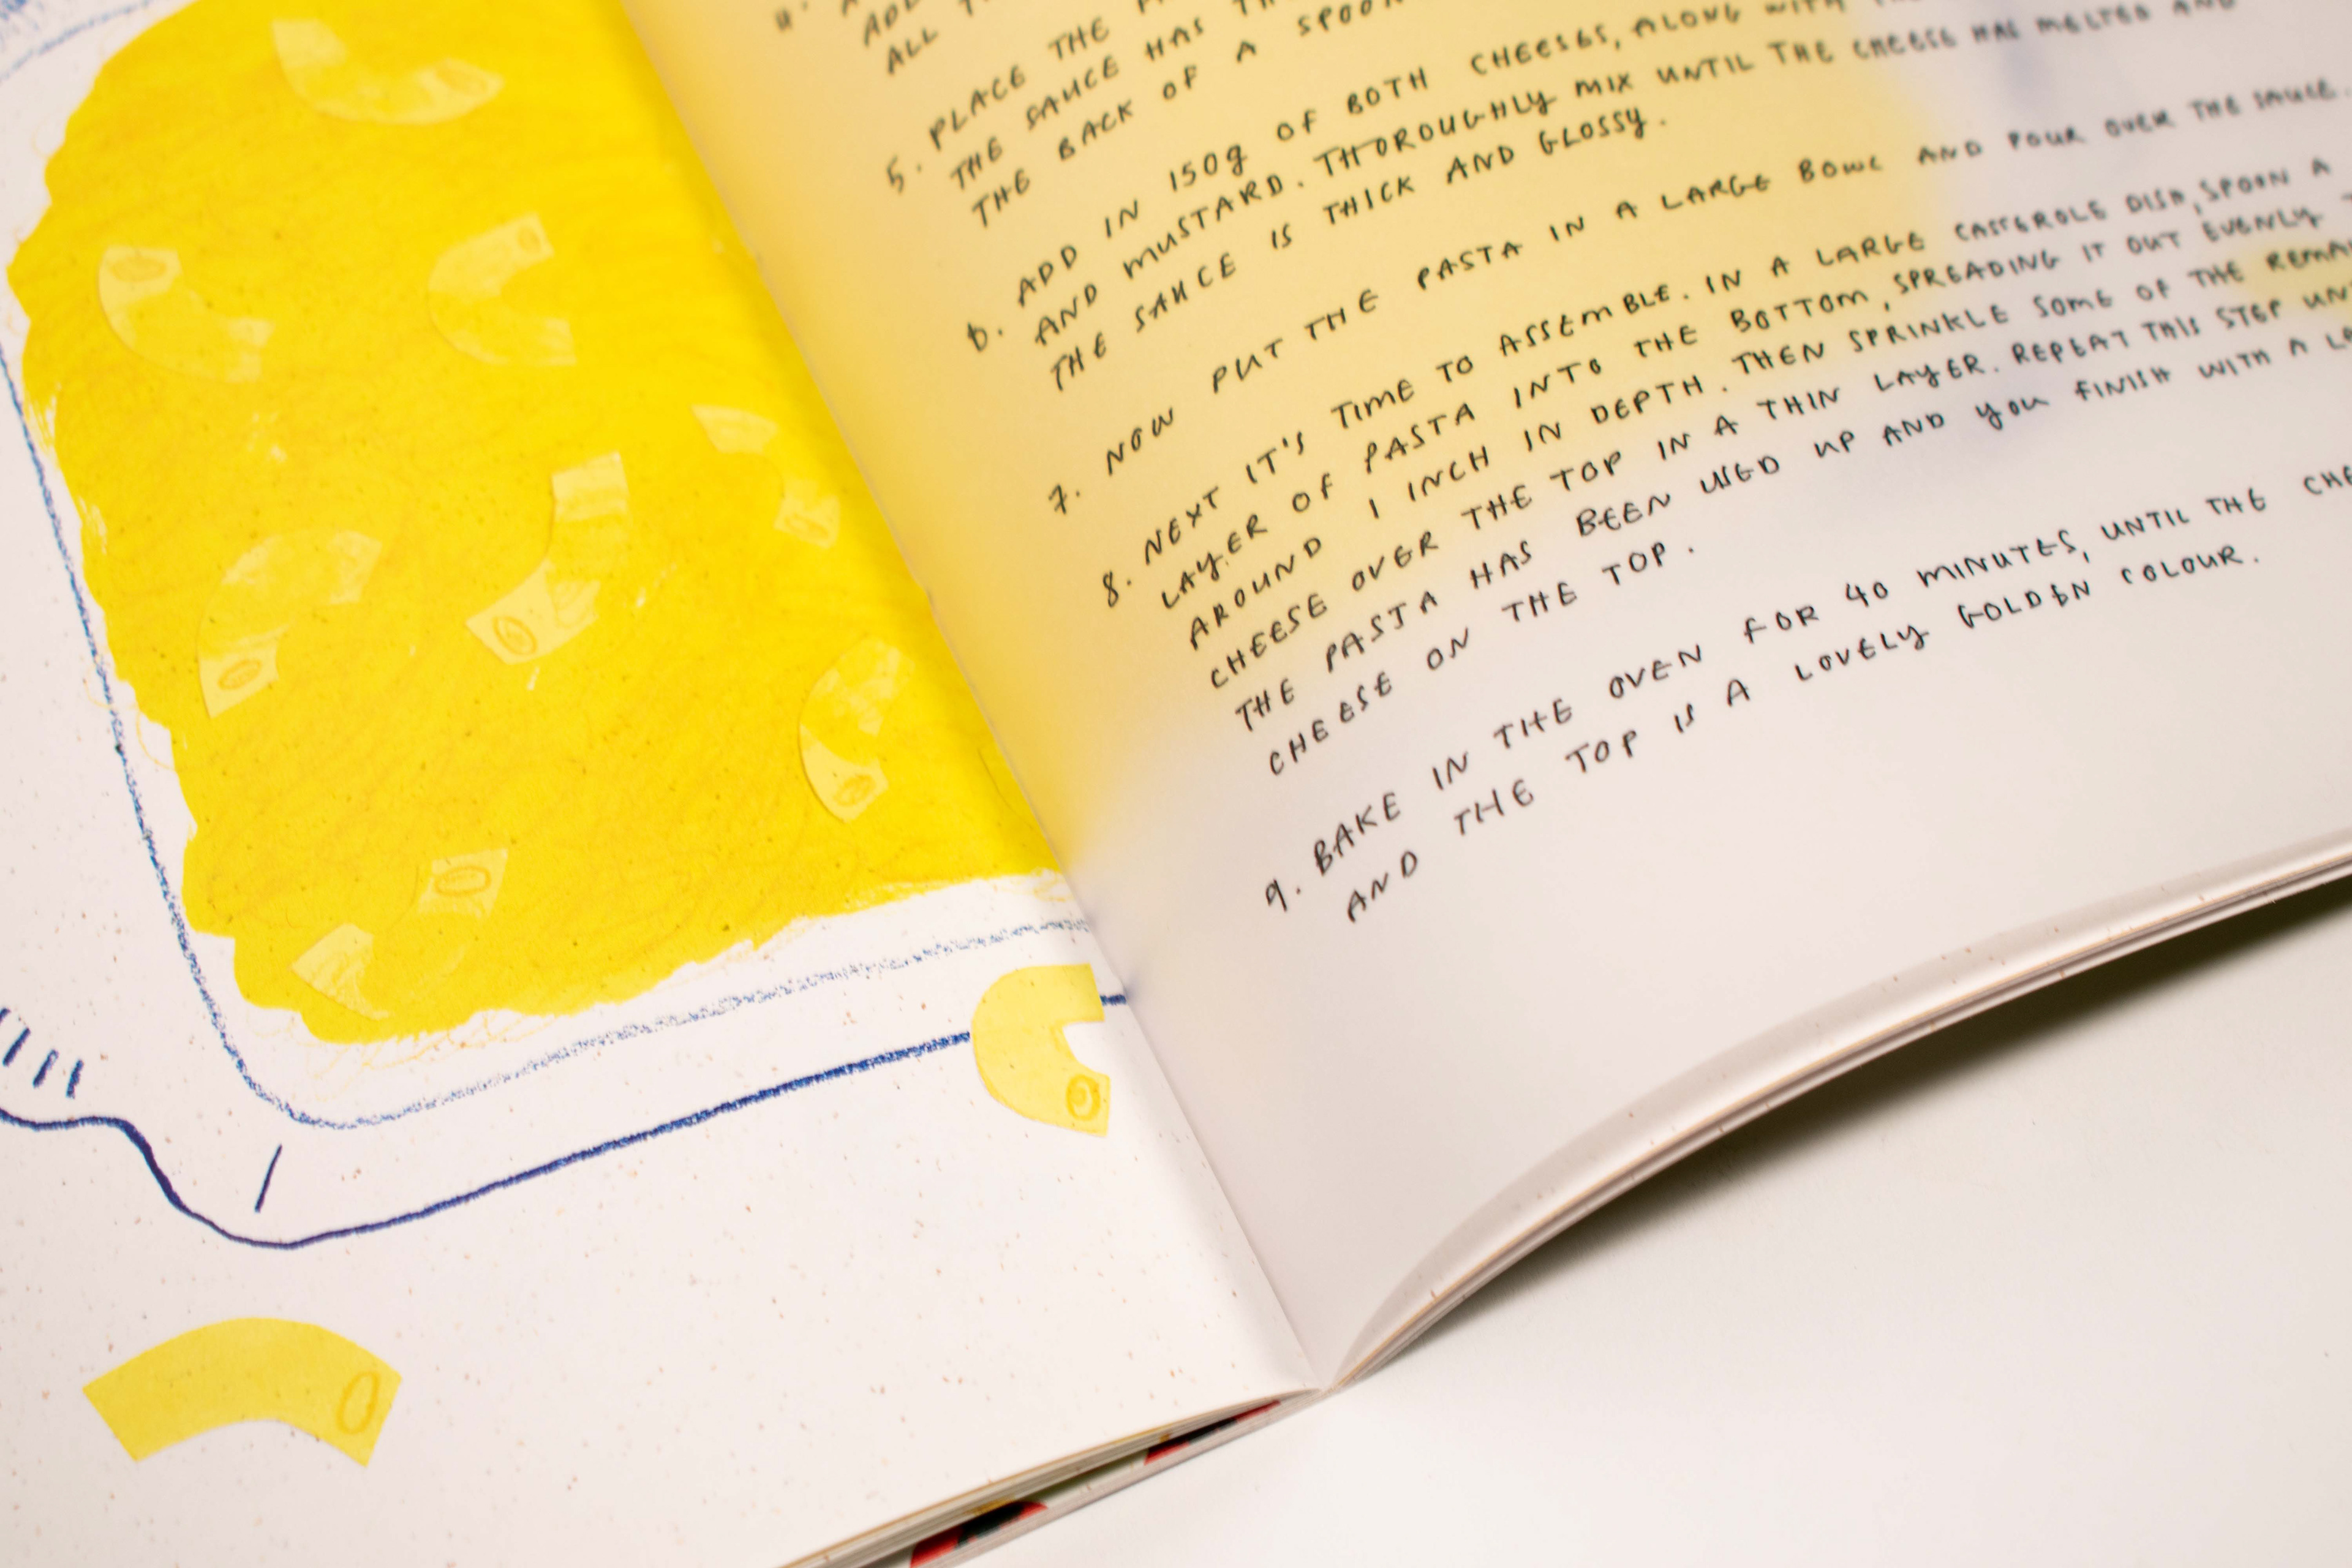 4. A
ADD
ALL T
5. PLACE THE
THE SAUCE HAS TH
THE BACK OF A SPOON
6. ADD IN 150g OF BOTH CHEESES, ALONG WITH
AND MUSTARD. THOROUGHLY MIX UNTIL THE CHEESE HAS MELTED AND
THE SAUCE IS THICK AND GLOSSY.
7. NOW PUT THE PASTA IN A LARGE BOWL AND POUR OVER THE SAUCE.
8. NEXT IT'S TIME TO ASSEMBLE. IN A LARGE CASSEROLE DISH, SPOON A
LAYER OF PASTA INTO THE BOTTOM, SPREADING IT OUT EVENLY
AROUND 1 INCH IN DEPTH. THEN SPRINKLE SOME OF THE REMAI
CHEESE OVER THE TOP IN A THIN LAYER. REPEAT THIS STEP UNT
THE PASTA HAS BEEN USED UP AND YOU FINISH WITH A LA
CHEESE ON THE TOP.
9. BAKE IN THE OVEN FOR 40 MINUTES, UNTIL THE CHE
AND THE TOP IS A LOVELY GOLDEN COLOUR.